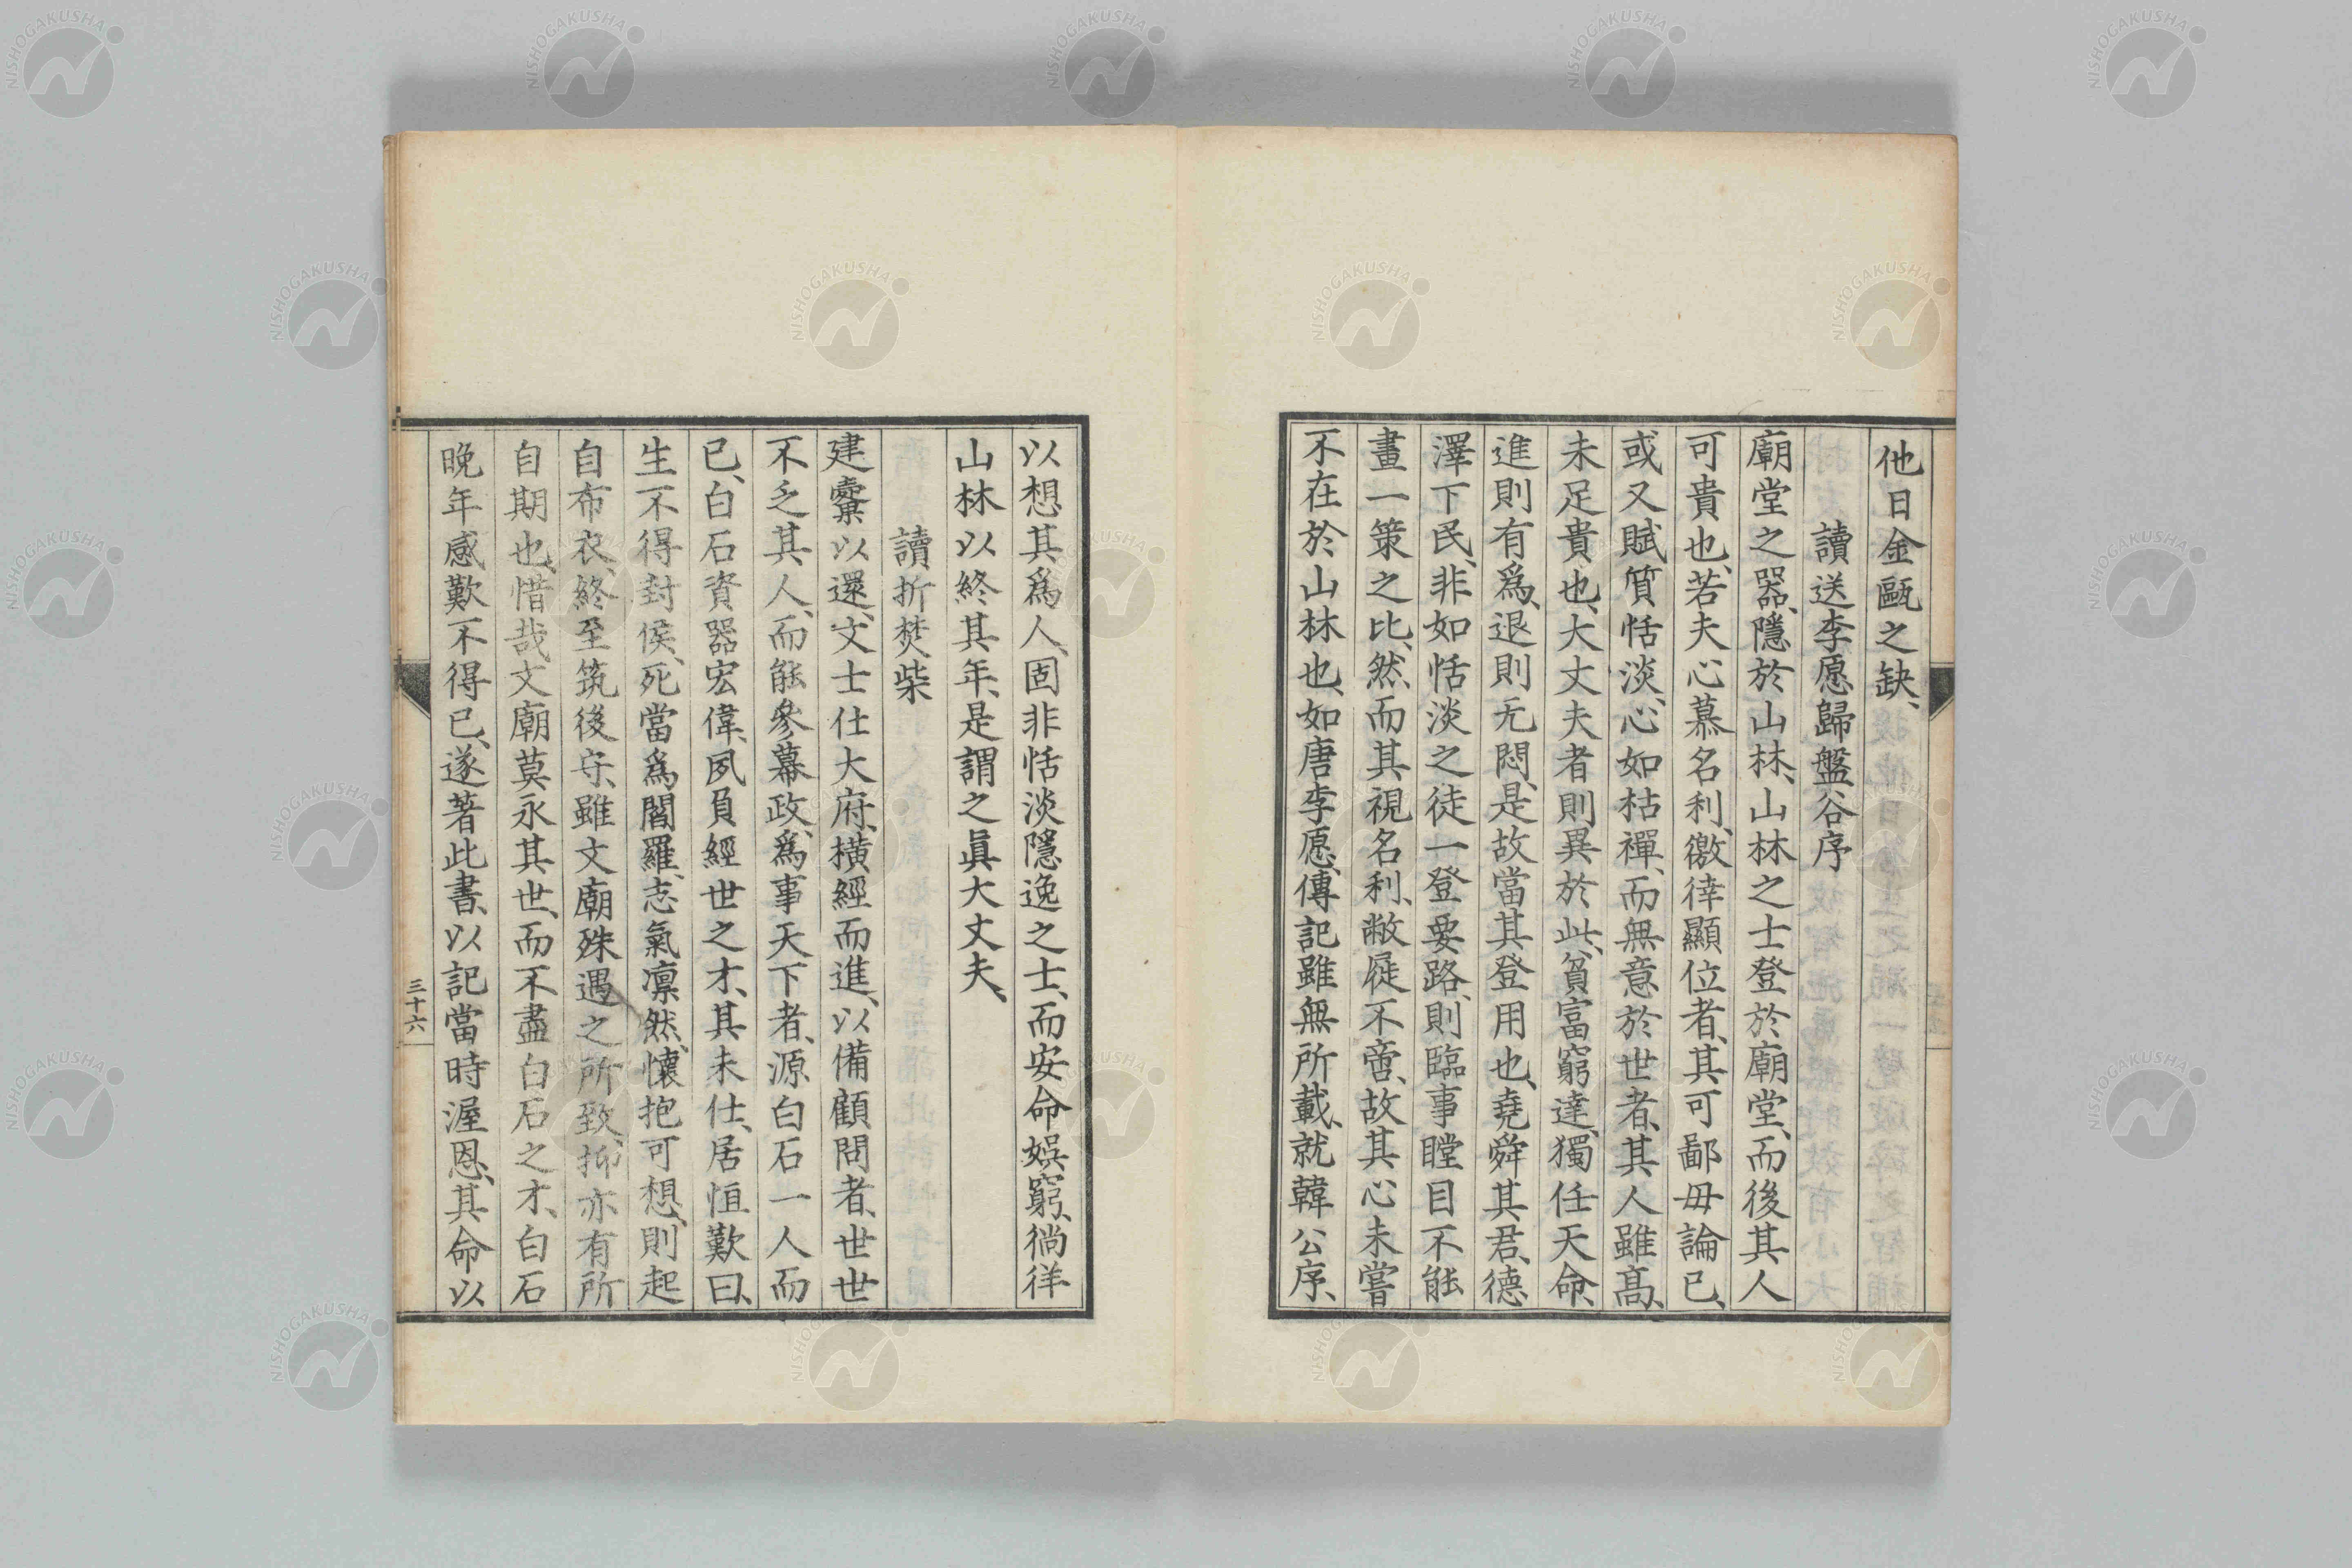 他日金甌之缺、
讀送李愿歸盤谷序
廟堂之器、隱於山林、山林之士登於廟堂、而後其人
可貴也、若夫心慕名利、徼倖顯位者、其可鄙毋論已、
或又賦質恬淡、心如枯禪、而無意於世者、其人雖高、
未足貴也、大丈夫者則異於此、貧富窮達、獨任天命、
進則有爲、退則无悶、是故當其登用也、堯舜其君、德
澤下民、非如恬淡之徒一登要路、則臨事瞠目不能
畫一策之比、然而其視名利、敝屣不啻、故其心未嘗
不在於山林也、如唐李愿、傳記雖無所載、就韓公序、
以想其爲人、固非恬淡隱逸之士、而安命娛窮、徜徉
山林以終其年、是謂之眞大丈夫、
讀折焚柴
建櫜以還、文士仕大府、橫經而進、以備顧問者、世世
不乏其人、而能參幕政、爲事天下者、源白石一人而
已、白石資器宏偉、夙負經世之才、其未仕、居恒歎曰、
生不得封侯、死當爲閻羅、志氣凛然、懷抱可想、則起
自布衣、終至筑後守、雖文廟殊遇之所致、抑亦有所
自期也、惜哉文廟莫永其世、而不盡白石之才、白石
晚年感歎不得已、遂著此書、以記當時渥恩、其命以
三十六
NISHOGAKUSHA